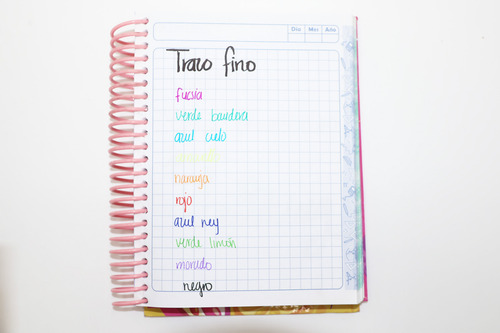 Día Mes Año
Trazo fino
fucsia
verde bandera
azul cielo
naranja
rojo
azul rey
verde limón
morado
negro